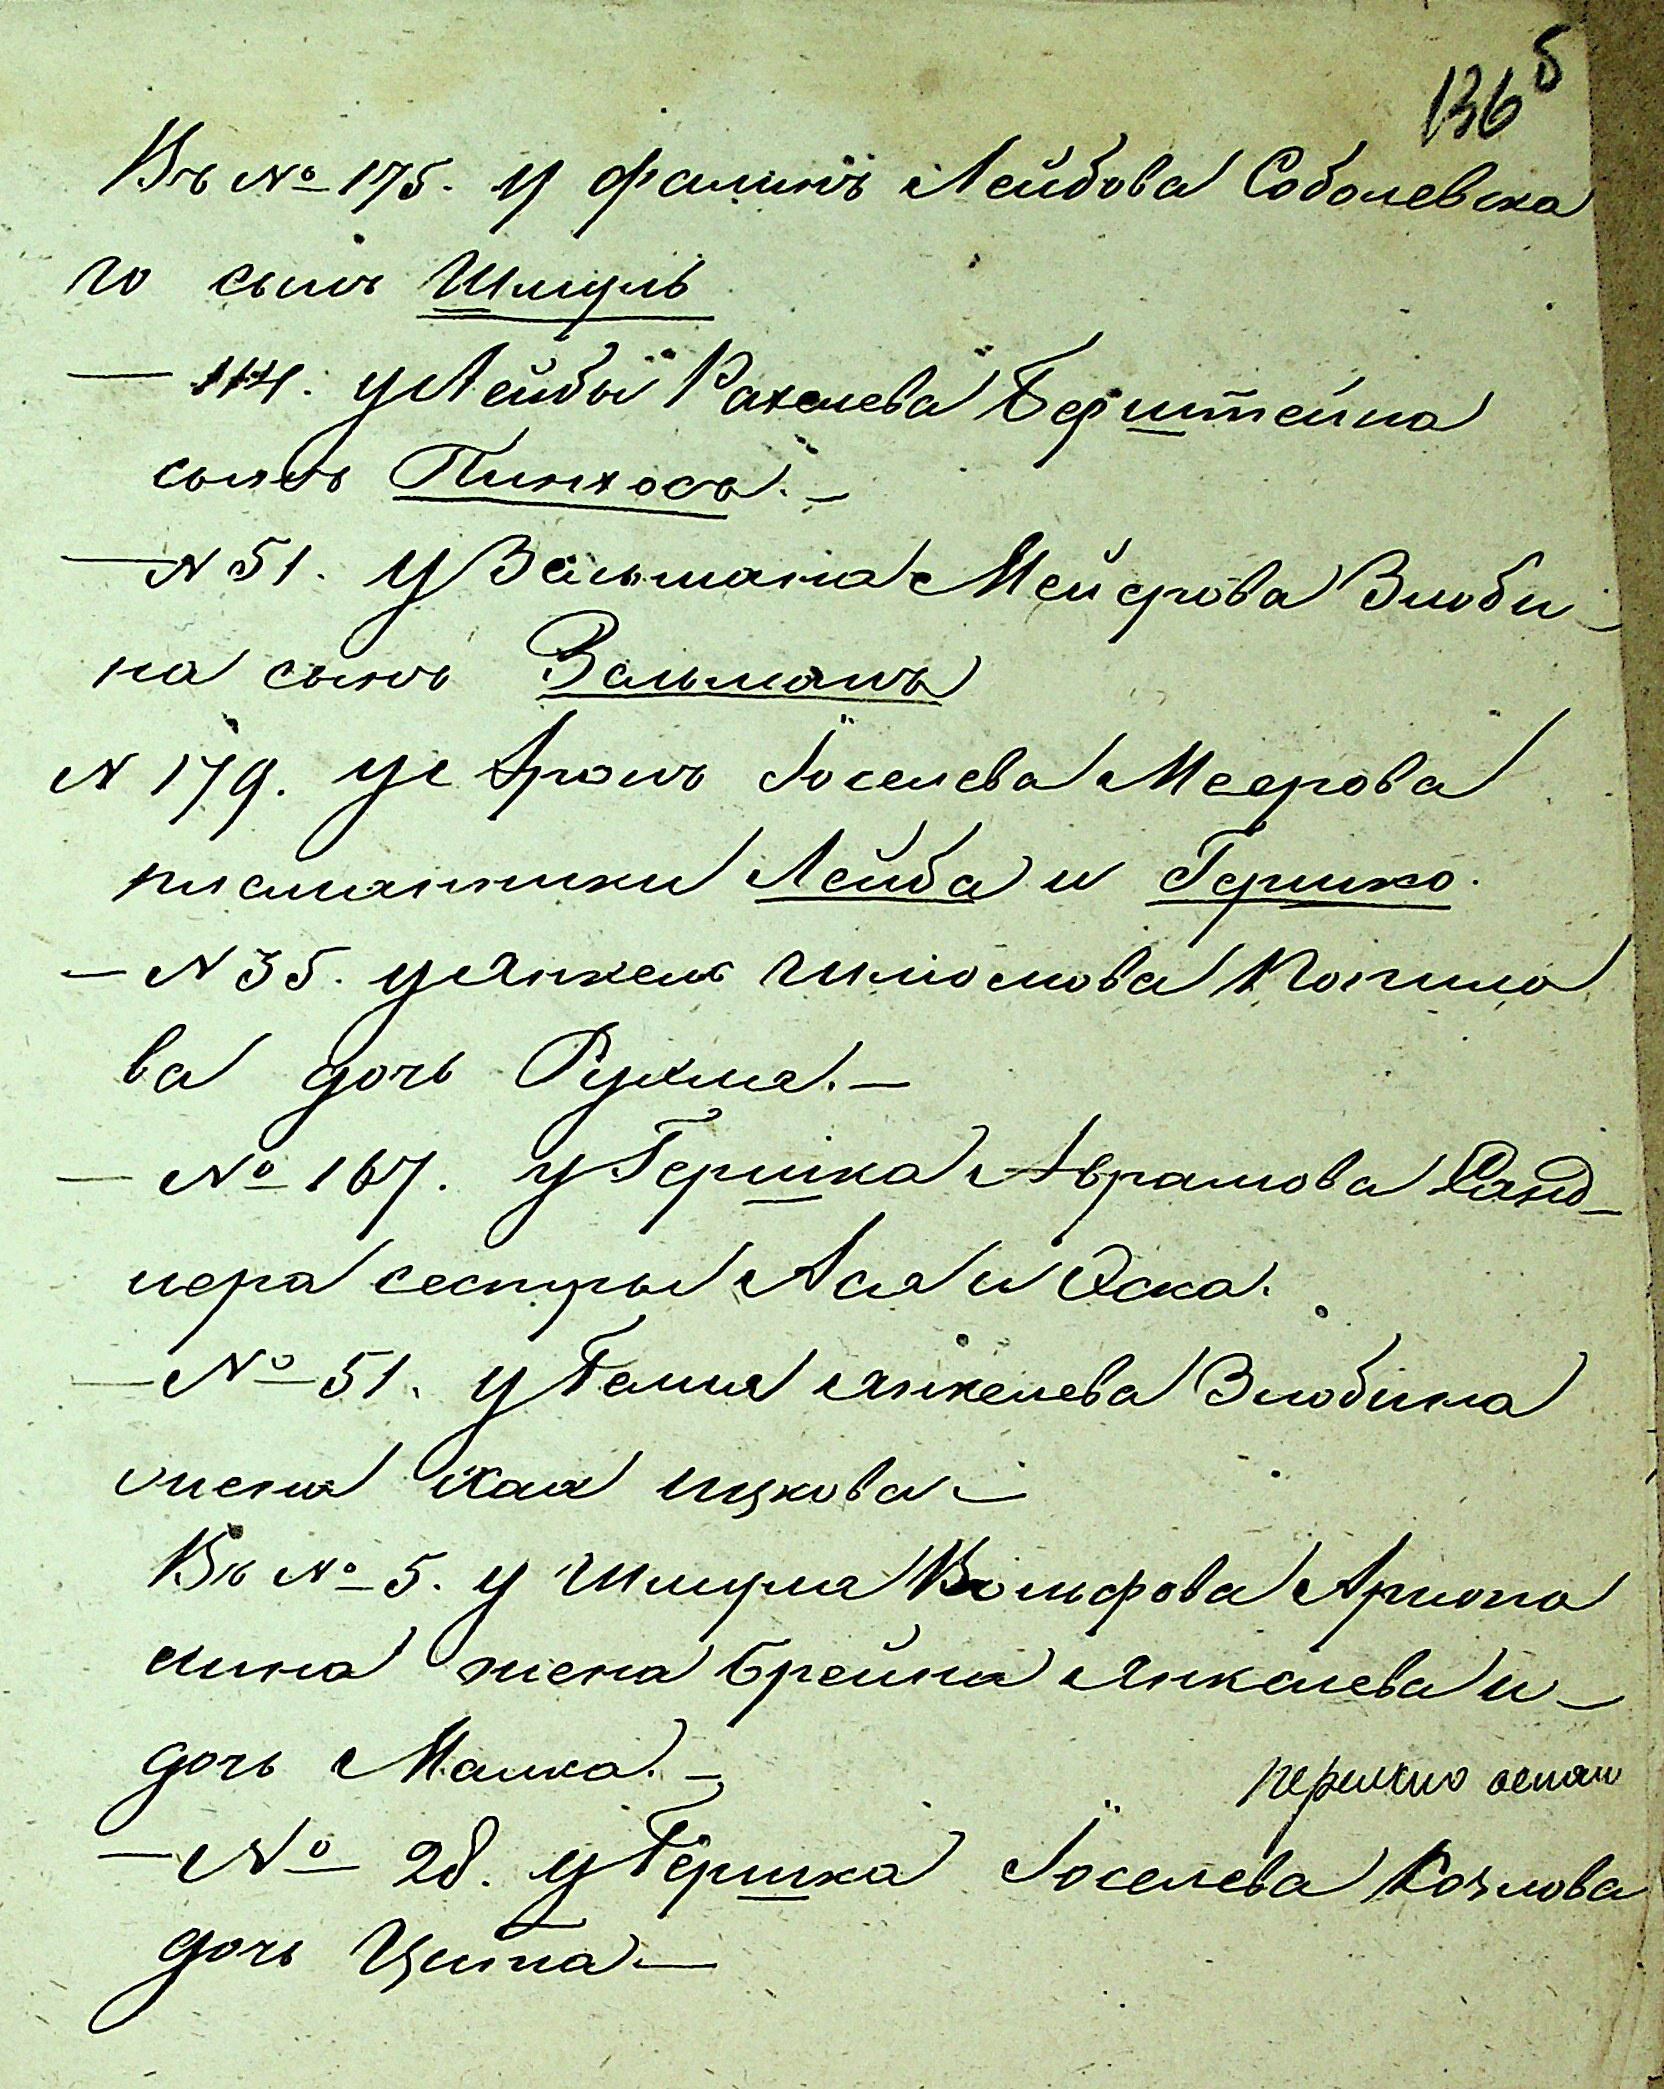 136 б
Въ № 175. у Фалинъ Лейбова Соболевска
го сынъ Шмуль
— 114. у Лейбы Рахелева Берштейна
сынъ Пинхосъ. —
— N 51. у Зальмана Мейерова Злоби-
на сынъ Зальманъ
N 179. у Аронъ Іоселева Меерова
племянники Лейба и Гершко.
— N 35. у Янкеля Шлиомова Копило
ва дочь Рухля. —
— № 167. у Гершка Аврамова Ланд-
пера сестры Ася и Эска.
— № 51. у Янкелева Злобина
жена Хая Ицкова —
Въ № 5. у Шмуля Вольфова
жена Брейна Янкелева и —
дочь Малка. —
— № 28. у Гершка Іоселева Козлова
дочь Ципа —